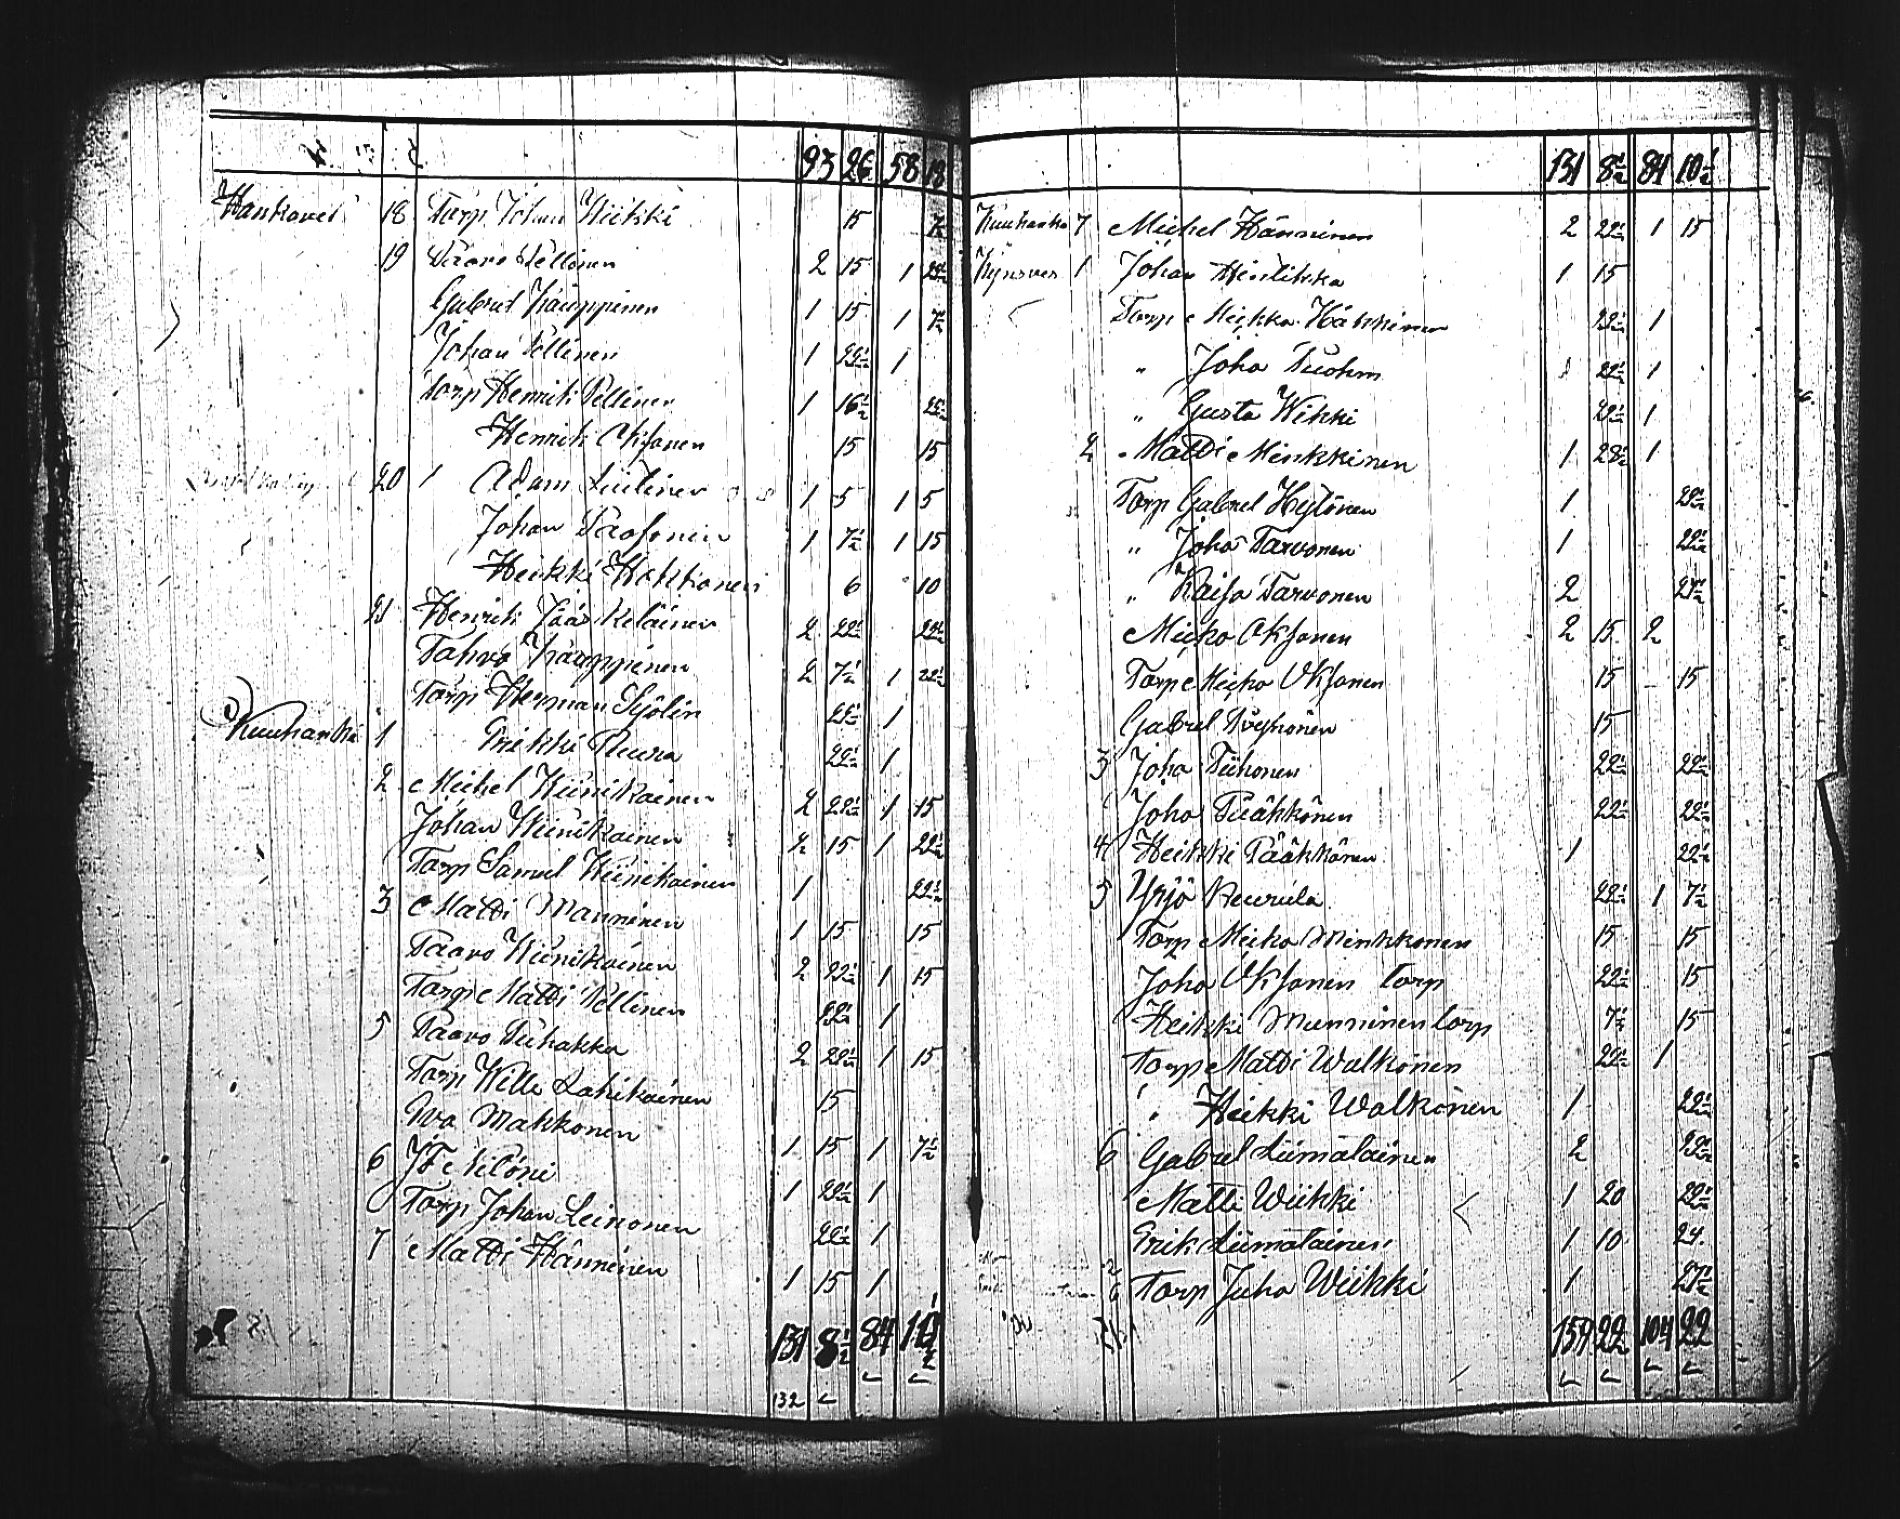 93 26 58 18
Hankavesi 18 Torp Johan Wiikki 15 7½
19 Paavo Pellinen 2 15 1 22½
Gabriel Kauppinen 1 15 1 7½
Johan Pellinen 1 22½ 1
Torp Henrik Pellinen 1 16½
Henrik Oksanen 15 15
20 Adam Liitinen 1 5 1 5
Johan Paasonen 1 7½ 1 15
Heikki 6 10
21 Henrik Jääskeläinen 2 22½ 22½
Tahvo Kauppinen 2 7½ 1 22½
Torp Herman Sjölin 22½ 1
Kuuhankа 1 Erikki Ruuna 22½ 1
2 Michel Wiinikainen 2 22½ 1 15
Johan Wiinikainen 2 15 1 22½
Torp Samuel Wiinikainen 1 22½
3 Matti Manninen 1 15 15
Paavo Wiinikainen 2 22½ 1 15
Torp Matti Pellinen 22½ 1
5 Paavo Puhakka 2 22½ 1 15
Torp Wille Lahikainen 15
Eva Makkonen 1 15 1 7½
6 1 22½ 1
Torp Johan Leinonen 22½ 1
7 Matti Hänninen 1 15 1
131 8½ 84
132
131 8½ 84 10½
Kuuhanka 7 Michel Hänninen 2 22½ 1 15
1 Johan Hintikka 1 15
Torp Miekka Häkkinen 22½ 1
" Joha Tuohm 22½ 1
" Gusta Wikki 22½ 1
2 Matti Minkkinen 1 22½ 1
Torp Gabriel Hytönen 1 22½
" Joha Tarvonen 1 22½
" Kaisa Tarvonen 2
Micko Oksanen 2 15 2
Torp Micko Oksanen 15 15
Gabriel Pöyhönen 15
3 Joha Tiihonen 22½ 22½
Joha Pääkkönen 22½ 22½
4 Heikki Pääkkönen 1 22½
5 Yrjö Kuurula 22½ 1 7½
Torp Micko Minkkonen 15 15
Joha Oksanen torp 22½ 15
Heikki Munninen torp 7½ 15
Torp Matti Walkonen 22½ 1
" Heikki Walkonen 1 22½
6 Gabriel Liimatainen 2 22½
Matti Wiikki 1 20 22½
Erik Liimatainen 1 10 24
Torp Juha Wiikki 1 27½
159 22 104 22